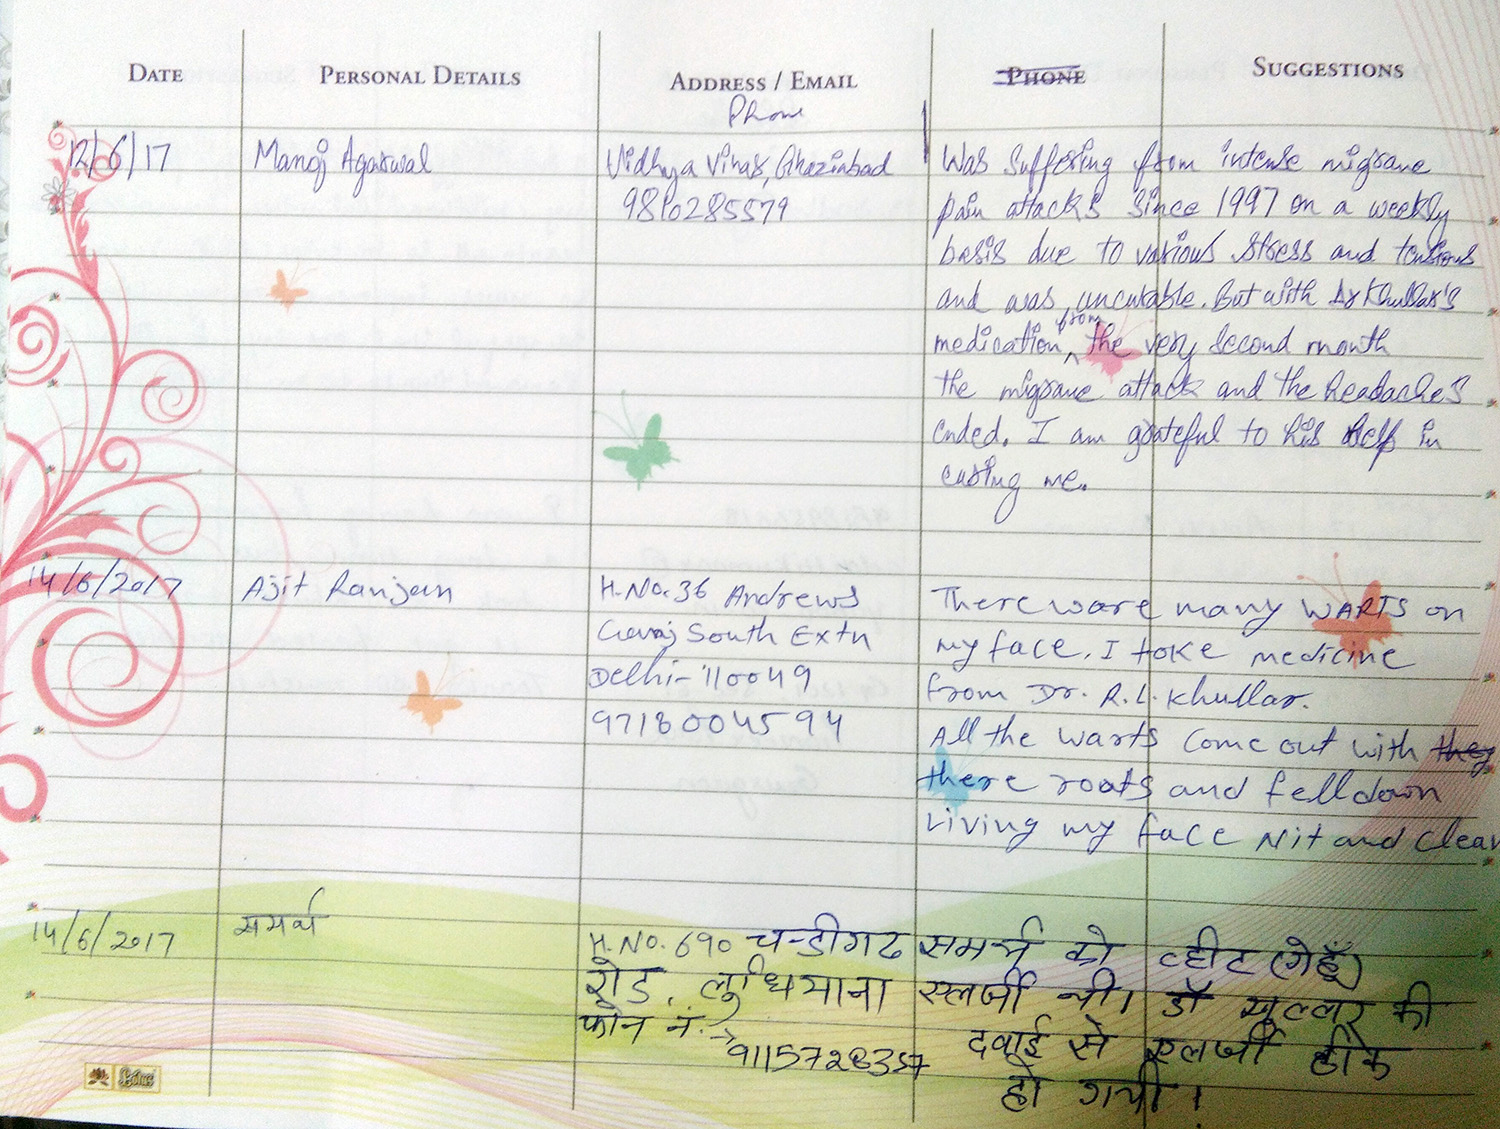 DATE PERSONAL DETAILS ADDRESS / EMAIL PHONE SUGGESTIONS
Phone
12/6/17 Manoj Agarwal Vidhya Vihar, Ghaziabad Was suffering from intense migrane
9810285579 pain attacks since 1997 on a weekly
basis due to various stress and tensions
and was uncurable. But with Dr Khullar's
medication from the very second month
the migrane attack and the headaches
ended. I am grateful to his help in
curing me.
14/6/2017 Ajit Ranjan H.No.36 Andrews There ware many WARTS on
Ganj South Extn my face. I toke medicine
Delhi-110049 from Dr. R.L. Khullar.
9718004594 All the warts come out with they
there roots and felldown
Living my face Nit and Clean
14/6/2017 समर्थ H.No. 690 चन्डीगढ समर्थ को व्हीट (गेहूँ)
रोड, लुधियाना एलर्जी थी। डॉ खुल्लर की
फोन नं. → दवाई से एलर्जी ठीक
9115728357 हो गयी।
Lotus